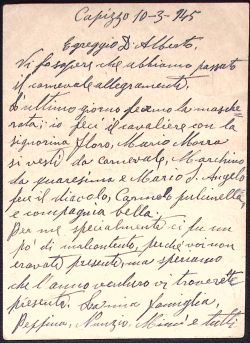 Capizzo 10-3-945
Egreggio D. Alberto,
Vi fo sapere che abbiamo passato
il carnevale allegramente.
L'ultimo giorno fecemo la masche
rata; io feci il cavaliere con la
signorina Floro, Mario Morra
si vestì da carnevale, Marchino
da quaresima e Mario d. Angelo
fece il diavolo, Carmelo pulcinella
e compagnia bella.
Per me specialmente ci fu un
po' di malcontento, perché voi non
eravate presente, ma speriamo
che l'anno venturo vi troverete
presente. La mia famiglia,
Peppina, Nunzio, Mimì e tutti